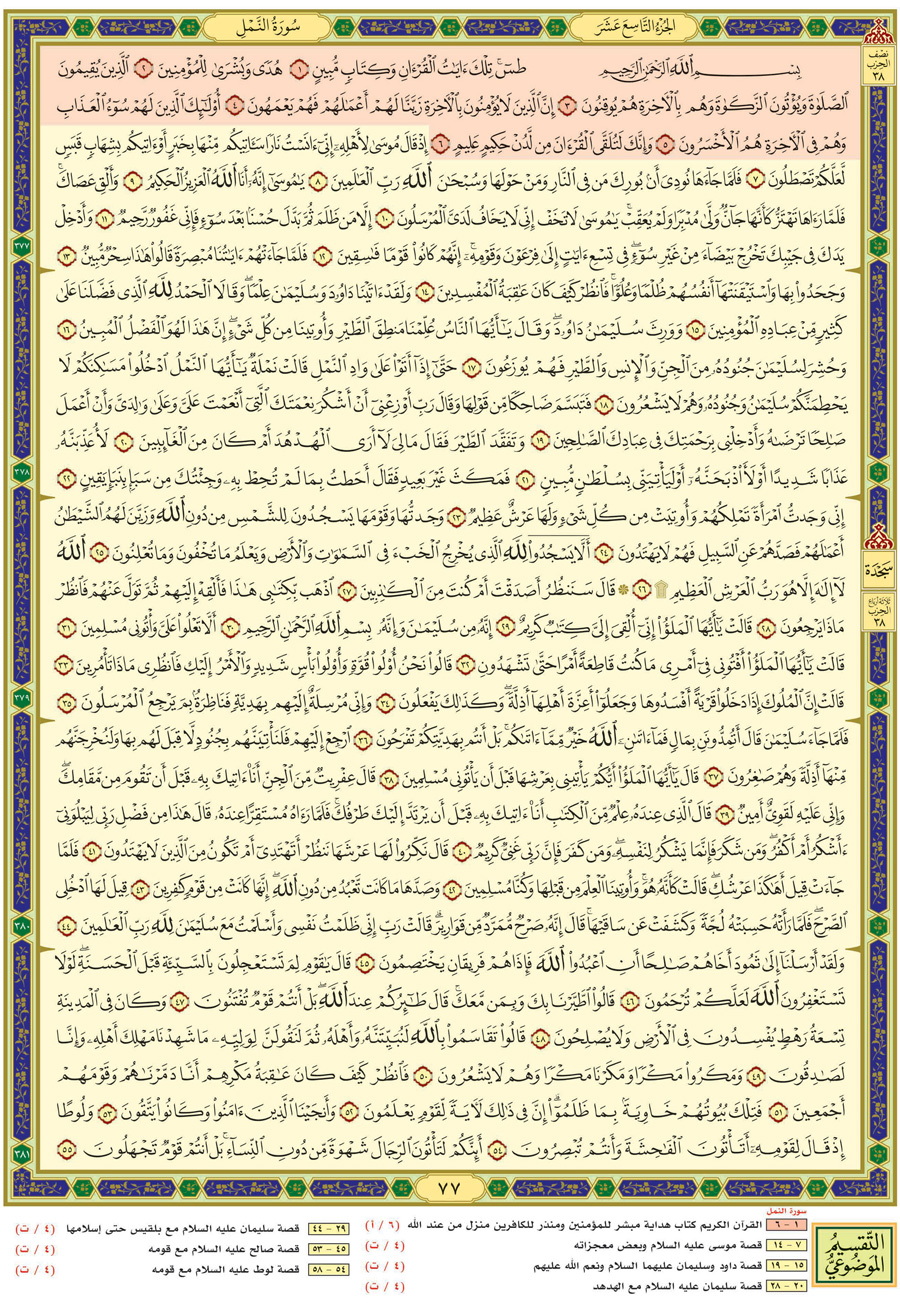 سُورَةُ النَّمْلِ
الجُزْءُ التَّاسِعَ عَشَرَ
نصف الحزب ٣٨
بِسْمِ ٱللَّهِ ٱلرَّحْمَٰنِ ٱلرَّحِيمِ طسٓ تِلْكَ ءَايَٰتُ ٱلْقُرْءَانِ وَكِتَابٍ مُّبِينٍ ١ هُدًى وَبُشْرَىٰ لِلْمُؤْمِنِينَ ٢ ٱلَّذِينَ يُقِيمُونَ
ٱلصَّلَوٰةَ وَيُؤْتُونَ ٱلزَّكَوٰةَ وَهُم بِٱلْءَاخِرَةِ هُمْ يُوقِنُونَ ٣ إِنَّ ٱلَّذِينَ لَا يُؤْمِنُونَ بِٱلْءَاخِرَةِ زَيَّنَّا لَهُمْ أَعْمَٰلَهُمْ فَهُمْ يَعْمَهُونَ ٤ أُو۟لَٰٓئِكَ ٱلَّذِينَ لَهُمْ سُوٓءُ ٱلْعَذَابِ
وَهُمْ فِى ٱلْءَاخِرَةِ هُمُ ٱلْأَخْسَرُونَ ٥ وَإِنَّكَ لَتُلَقَّى ٱلْقُرْءَانَ مِن لَّدُنْ حَكِيمٍ عَلِيمٍ ٦ إِذْ قَالَ مُوسَىٰ لِأَهْلِهِۦٓ إِنِّىٓ ءَانَسْتُ نَارًا سَـَٔاتِيكُم مِّنْهَا بِخَبَرٍ أَوْ ءَاتِيكُم بِشِهَابٍ قَبَسٍ
لَّعَلَّكُمْ تَصْطَلُونَ ٧ فَلَمَّا جَآءَهَا نُودِىَ أَنۢ بُورِكَ مَن فِى ٱلنَّارِ وَمَنْ حَوْلَهَا وَسُبْحَٰنَ ٱللَّهِ رَبِّ ٱلْعَٰلَمِينَ ٨ يَٰمُوسَىٰٓ إِنَّهُۥٓ أَنَا ٱللَّهُ ٱلْعَزِيزُ ٱلْحَكِيمُ ٩ وَأَلْقِ عَصَاكَ
فَلَمَّا رَءَاهَا تَهْتَزُّ كَأَنَّهَا جَآنٌّ وَلَّىٰ مُدْبِرًا وَلَمْ يُعَقِّبْ يَٰمُوسَىٰ لَا تَخَفْ إِنِّى لَا يَخَافُ لَدَىَّ ٱلْمُرْسَلُونَ ١٠ إِلَّا مَن ظَلَمَ ثُمَّ بَدَّلَ حُسْنًۢا بَعْدَ سُوٓءٍ فَإِنِّى غَفُورٌ رَّحِيمٌ ١١ وَأَدْخِلْ
يَدَكَ فِى جَيْبِكَ تَخْرُجْ بَيْضَآءَ مِنْ غَيْرِ سُوٓءٍ فِى تِسْعِ ءَايَٰتٍ إِلَىٰ فِرْعَوْنَ وَقَوْمِهِۦٓ إِنَّهُمْ كَانُوا۟ قَوْمًا فَٰسِقِينَ ١٢ فَلَمَّا جَآءَتْهُمْ ءَايَٰتُنَا مُبْصِرَةً قَالُوا۟ هَٰذَا سِحْرٌ مُّبِينٌ ١٣
وَجَحَدُوا۟ بِهَا وَٱسْتَيْقَنَتْهَآ أَنفُسُهُمْ ظُلْمًا وَعُلُوًّا فَٱنظُرْ كَيْفَ كَانَ عَٰقِبَةُ ٱلْمُفْسِدِينَ ١٤ وَلَقَدْ ءَاتَيْنَا دَاوُۥدَ وَسُلَيْمَٰنَ عِلْمًا وَقَالَا ٱلْحَمْدُ لِلَّهِ ٱلَّذِى فَضَّلَنَا عَلَىٰ
كَثِيرٍ مِّنْ عِبَادِهِ ٱلْمُؤْمِنِينَ ١٥ وَوَرِثَ سُلَيْمَٰنُ دَاوُۥدَ وَقَالَ يَٰٓأَيُّهَا ٱلنَّاسُ عُلِّمْنَا مَنطِقَ ٱلطَّيْرِ وَأُوتِينَا مِن كُلِّ شَىْءٍ إِنَّ هَٰذَا لَهُوَ ٱلْفَضْلُ ٱلْمُبِينُ ١٦
وَحُشِرَ لِسُلَيْمَٰنَ جُنُودُهُۥ مِنَ ٱلْجِنِّ وَٱلْإِنسِ وَٱلطَّيْرِ فَهُمْ يُوزَعُونَ ١٧ حَتَّىٰٓ إِذَآ أَتَوْا۟ عَلَىٰ وَادِ ٱلنَّمْلِ قَالَتْ نَمْلَةٌ يَٰٓأَيُّهَا ٱلنَّمْلُ ٱدْخُلُوا۟ مَسَٰكِنَكُمْ لَا
يَحْطِمَنَّكُمْ سُلَيْمَٰنُ وَجُنُودُهُۥ وَهُمْ لَا يَشْعُرُونَ ١٨ فَتَبَسَّمَ ضَاحِكًا مِّن قَوْلِهَا وَقَالَ رَبِّ أَوْزِعْنِىٓ أَنْ أَشْكُرَ نِعْمَتَكَ ٱلَّتِىٓ أَنْعَمْتَ عَلَىَّ وَعَلَىٰ وَٰلِدَىَّ وَأَنْ أَعْمَلَ
صَٰلِحًا تَرْضَىٰهُ وَأَدْخِلْنِى بِرَحْمَتِكَ فِى عِبَادِكَ ٱلصَّٰلِحِينَ ١٩ وَتَفَقَّدَ ٱلطَّيْرَ فَقَالَ مَا لِىَ لَآ أَرَى ٱلْهُدْهُدَ أَمْ كَانَ مِنَ ٱلْغَآئِبِينَ ٢٠ لَأُعَذِّبَنَّهُۥ
عَذَابًا شَدِيدًا أَوْ لَأَا۟ذْبَحَنَّهُۥٓ أَوْ لَيَأْتِيَنِّى بِسُلْطَٰنٍ مُّبِينٍ ٢١ فَمَكَثَ غَيْرَ بَعِيدٍ فَقَالَ أَحَطتُ بِمَا لَمْ تُحِطْ بِهِۦ وَجِئْتُكَ مِن سَبَإٍۭ بِنَبَإٍ يَقِينٍ ٢٢
إِنِّى وَجَدتُّ ٱمْرَأَةً تَمْلِكُهُمْ وَأُوتِيَتْ مِن كُلِّ شَىْءٍ وَلَهَا عَرْشٌ عَظِيمٌ ٢٣ وَجَدتُّهَا وَقَوْمَهَا يَسْجُدُونَ لِلشَّمْسِ مِن دُونِ ٱللَّهِ وَزَيَّنَ لَهُمُ ٱلشَّيْطَٰنُ
أَعْمَٰلَهُمْ فَصَدَّهُمْ عَنِ ٱلسَّبِيلِ فَهُمْ لَا يَهْتَدُونَ ٢٤ أَلَّا يَسْجُدُوا۟ لِلَّهِ ٱلَّذِى يُخْرِجُ ٱلْخَبْءَ فِى ٱلسَّمَٰوَٰتِ وَٱلْأَرْضِ وَيَعْلَمُ مَا تُخْفُونَ وَمَا تُعْلِنُونَ ٢٥ ٱللَّهُ
لَآ إِلَٰهَ إِلَّا هُوَ رَبُّ ٱلْعَرْشِ ٱلْعَظِيمِ ۩ ٢٦ ۞ قَالَ سَنَنظُرُ أَصَدَقْتَ أَمْ كُنتَ مِنَ ٱلْكَٰذِبِينَ ٢٧ ٱذْهَب بِّكِتَٰبِى هَٰذَا فَأَلْقِهْ إِلَيْهِمْ ثُمَّ تَوَلَّ عَنْهُمْ فَٱنظُرْ
مَاذَا يَرْجِعُونَ ٢٨ قَالَتْ يَٰٓأَيُّهَا ٱلْمَلَؤُا۟ إِنِّىٓ أُلْقِىَ إِلَىَّ كِتَٰبٌ كَرِيمٌ ٢٩ إِنَّهُۥ مِن سُلَيْمَٰنَ وَإِنَّهُۥ بِسْمِ ٱللَّهِ ٱلرَّحْمَٰنِ ٱلرَّحِيمِ ٣٠ أَلَّا تَعْلُوا۟ عَلَىَّ وَأْتُونِى مُسْلِمِينَ ٣١
قَالَتْ يَٰٓأَيُّهَا ٱلْمَلَؤُا۟ أَفْتُونِى فِىٓ أَمْرِى مَا كُنتُ قَاطِعَةً أَمْرًا حَتَّىٰ تَشْهَدُونِ ٣٢ قَالُوا۟ نَحْنُ أُو۟لُوا۟ قُوَّةٍ وَأُو۟لُوا۟ بَأْسٍ شَدِيدٍ وَٱلْأَمْرُ إِلَيْكِ فَٱنظُرِى مَاذَا تَأْمُرِينَ ٣٣
قَالَتْ إِنَّ ٱلْمُلُوكَ إِذَا دَخَلُوا۟ قَرْيَةً أَفْسَدُوهَا وَجَعَلُوٓا۟ أَعِزَّةَ أَهْلِهَآ أَذِلَّةً وَكَذَٰلِكَ يَفْعَلُونَ ٣٤ وَإِنِّى مُرْسِلَةٌ إِلَيْهِم بِهَدِيَّةٍ فَنَاظِرَةٌۢ بِمَ يَرْجِعُ ٱلْمُرْسَلُونَ ٣٥
فَلَمَّا جَآءَ سُلَيْمَٰنَ قَالَ أَتُمِدُّونَنِ بِمَالٍ فَمَآ ءَاتَىٰنِۦَ ٱللَّهُ خَيْرٌ مِّمَّآ ءَاتَىٰكُم بَلْ أَنتُم بِهَدِيَّتِكُمْ تَفْرَحُونَ ٣٦ ٱرْجِعْ إِلَيْهِمْ فَلَنَأْتِيَنَّهُم بِجُنُودٍ لَّا قِبَلَ لَهُم بِهَا وَلَنُخْرِجَنَّهُم
مِّنْهَآ أَذِلَّةً وَهُمْ صَٰغِرُونَ ٣٧ قَالَ يَٰٓأَيُّهَا ٱلْمَلَؤُا۟ أَيُّكُمْ يَأْتِينِى بِعَرْشِهَا قَبْلَ أَن يَأْتُونِى مُسْلِمِينَ ٣٨ قَالَ عِفْرِيتٌ مِّنَ ٱلْجِنِّ أَنَا۠ ءَاتِيكَ بِهِۦ قَبْلَ أَن تَقُومَ مِن مَّقَامِكَ
وَإِنِّى عَلَيْهِ لَقَوِىٌّ أَمِينٌ ٣٩ قَالَ ٱلَّذِى عِندَهُۥ عِلْمٌ مِّنَ ٱلْكِتَٰبِ أَنَا۠ ءَاتِيكَ بِهِۦ قَبْلَ أَن يَرْتَدَّ إِلَيْكَ طَرْفُكَ فَلَمَّا رَءَاهُ مُسْتَقِرًّا عِندَهُۥ قَالَ هَٰذَا مِن فَضْلِ رَبِّى لِيَبْلُوَنِىٓ
ءَأَشْكُرُ أَمْ أَكْفُرُ وَمَن شَكَرَ فَإِنَّمَا يَشْكُرُ لِنَفْسِهِۦ وَمَن كَفَرَ فَإِنَّ رَبِّى غَنِىٌّ كَرِيمٌ ٤٠ قَالَ نَكِّرُوا۟ لَهَا عَرْشَهَا نَنظُرْ أَتَهْتَدِىٓ أَمْ تَكُونُ مِنَ ٱلَّذِينَ لَا يَهْتَدُونَ ٤١ فَلَمَّا
جَآءَتْ قِيلَ أَهَٰكَذَا عَرْشُكِ قَالَتْ كَأَنَّهُۥ هُوَ وَأُوتِينَا ٱلْعِلْمَ مِن قَبْلِهَا وَكُنَّا مُسْلِمِينَ ٤٢ وَصَدَّهَا مَا كَانَت تَّعْبُدُ مِن دُونِ ٱللَّهِ إِنَّهَا كَانَتْ مِن قَوْمٍ كَٰفِرِينَ ٤٣ قِيلَ لَهَا ٱدْخُلِى
ٱلصَّرْحَ فَلَمَّا رَأَتْهُ حَسِبَتْهُ لُجَّةً وَكَشَفَتْ عَن سَاقَيْهَا قَالَ إِنَّهُۥ صَرْحٌ مُّمَرَّدٌ مِّن قَوَارِيرَ قَالَتْ رَبِّ إِنِّى ظَلَمْتُ نَفْسِى وَأَسْلَمْتُ مَعَ سُلَيْمَٰنَ لِلَّهِ رَبِّ ٱلْعَٰلَمِينَ ٤٤
وَلَقَدْ أَرْسَلْنَآ إِلَىٰ ثَمُودَ أَخَاهُمْ صَٰلِحًا أَنِ ٱعْبُدُوا۟ ٱللَّهَ فَإِذَا هُمْ فَرِيقَانِ يَخْتَصِمُونَ ٤٥ قَالَ يَٰقَوْمِ لِمَ تَسْتَعْجِلُونَ بِٱلسَّيِّئَةِ قَبْلَ ٱلْحَسَنَةِ لَوْلَا
تَسْتَغْفِرُونَ ٱللَّهَ لَعَلَّكُمْ تُرْحَمُونَ ٤٦ قَالُوا۟ ٱطَّيَّرْنَا بِكَ وَبِمَن مَّعَكَ قَالَ طَٰٓئِرُكُمْ عِندَ ٱللَّهِ بَلْ أَنتُمْ قَوْمٌ تُفْتَنُونَ ٤٧ وَكَانَ فِى ٱلْمَدِينَةِ
تِسْعَةُ رَهْطٍ يُفْسِدُونَ فِى ٱلْأَرْضِ وَلَا يُصْلِحُونَ ٤٨ قَالُوا۟ تَقَاسَمُوا۟ بِٱللَّهِ لَنُبَيِّتَنَّهُۥ وَأَهْلَهُۥ ثُمَّ لَنَقُولَنَّ لِوَلِيِّهِۦ مَا شَهِدْنَا مَهْلِكَ أَهْلِهِۦ وَإِنَّا
لَصَٰدِقُونَ ٤٩ وَمَكَرُوا۟ مَكْرًا وَمَكَرْنَا مَكْرًا وَهُمْ لَا يَشْعُرُونَ ٥٠ فَٱنظُرْ كَيْفَ كَانَ عَٰقِبَةُ مَكْرِهِمْ أَنَّا دَمَّرْنَٰهُمْ وَقَوْمَهُمْ
أَجْمَعِينَ ٥١ فَتِلْكَ بُيُوتُهُمْ خَاوِيَةًۢ بِمَا ظَلَمُوٓا۟ إِنَّ فِى ذَٰلِكَ لَءَايَةً لِّقَوْمٍ يَعْلَمُونَ ٥٢ وَأَنجَيْنَا ٱلَّذِينَ ءَامَنُوا۟ وَكَانُوا۟ يَتَّقُونَ ٥٣ وَلُوطًا
إِذْ قَالَ لِقَوْمِهِۦٓ أَتَأْتُونَ ٱلْفَٰحِشَةَ وَأَنتُمْ تُبْصِرُونَ ٥٤ أَئِنَّكُمْ لَتَأْتُونَ ٱلرِّجَالَ شَهْوَةً مِّن دُونِ ٱلنِّسَآءِ بَلْ أَنتُمْ قَوْمٌ تَجْهَلُونَ ٥٥
٣٧٧
٣٧٨
٣٧٩
٣٨٠
٣٨١
سَجْدَة
ثلاثة أرباع الحزب ٣٨
٧٧
التَّقسِيمُ المَوضُوعِيُّ
سورة النمل
١ – ٦ القرآن الكريم كتاب هداية مبشر للمؤمنين ومنذر للكافرين منزل من عند الله (٦ / أ)
٧ – ١٤ قصة موسى عليه السلام وبعض معجزاته (٤ / ت)
١٥ – ١٩ قصة داود وسليمان عليهما السلام ونعم الله عليهم (٤ / ت)
٢٠ – ٢٨ قصة سليمان عليه السلام مع الهدهد (٤ / ت)
٢٩ – ٤٤ قصة سليمان عليه السلام مع بلقيس حتى إسلامها (٤ / ت)
٤٥ – ٥٣ قصة صالح عليه السلام مع قومه (٤ / ت)
٥٤ – ٥٨ قصة لوط عليه السلام مع قومه (٤ / ت)